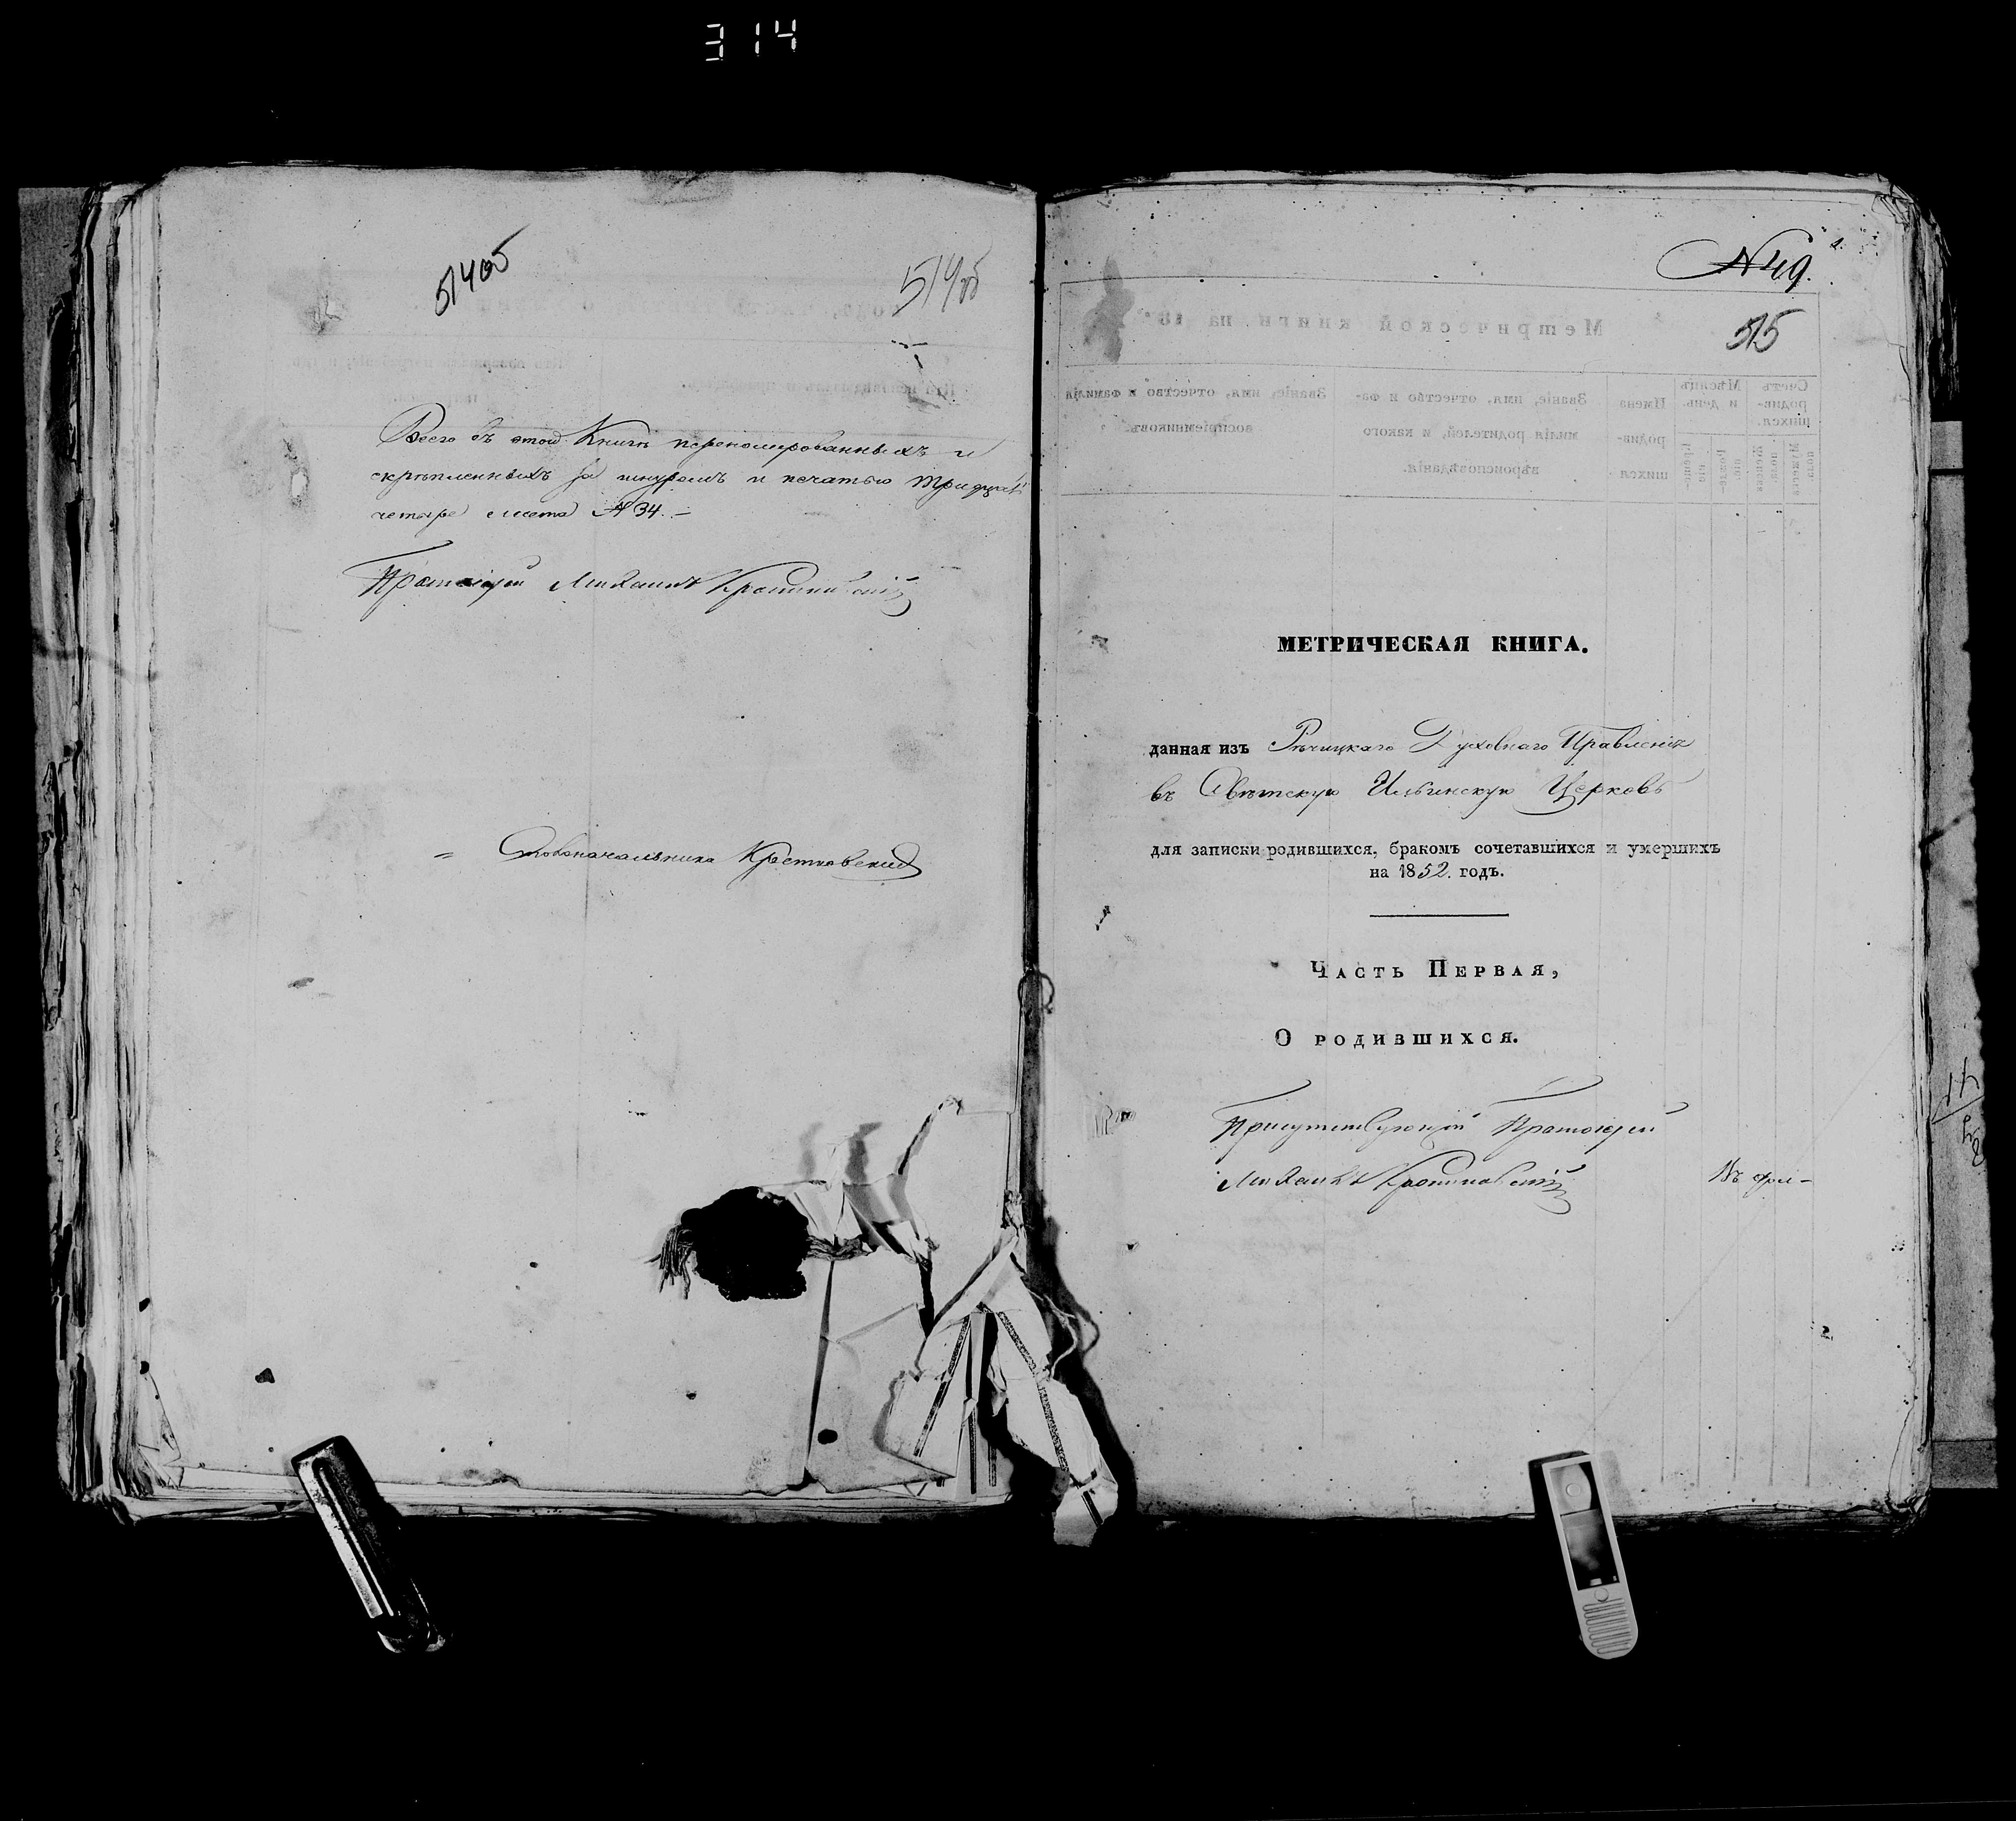 314
514об
514об
Всего въ этой Книге переномерованныхъ и
скрепленныхъ за шнуромъ и печатью тридцать
четыре листа № 34. –
Протоіерей Михаилъ
= Столоначальника
№ 49.
515
МЕТРИЧЕСКАЯ КНИГА.
данная изъ Речицкаго Духовнаго Правленія
въ Светскую Ильинскую Церковь
для записки родившихся, бракомъ сочетавшихся и умершихъ
на 1852. годъ.
Часть Первая,
О родившихся.
Присутствующій Протоіерей
Михаилъ